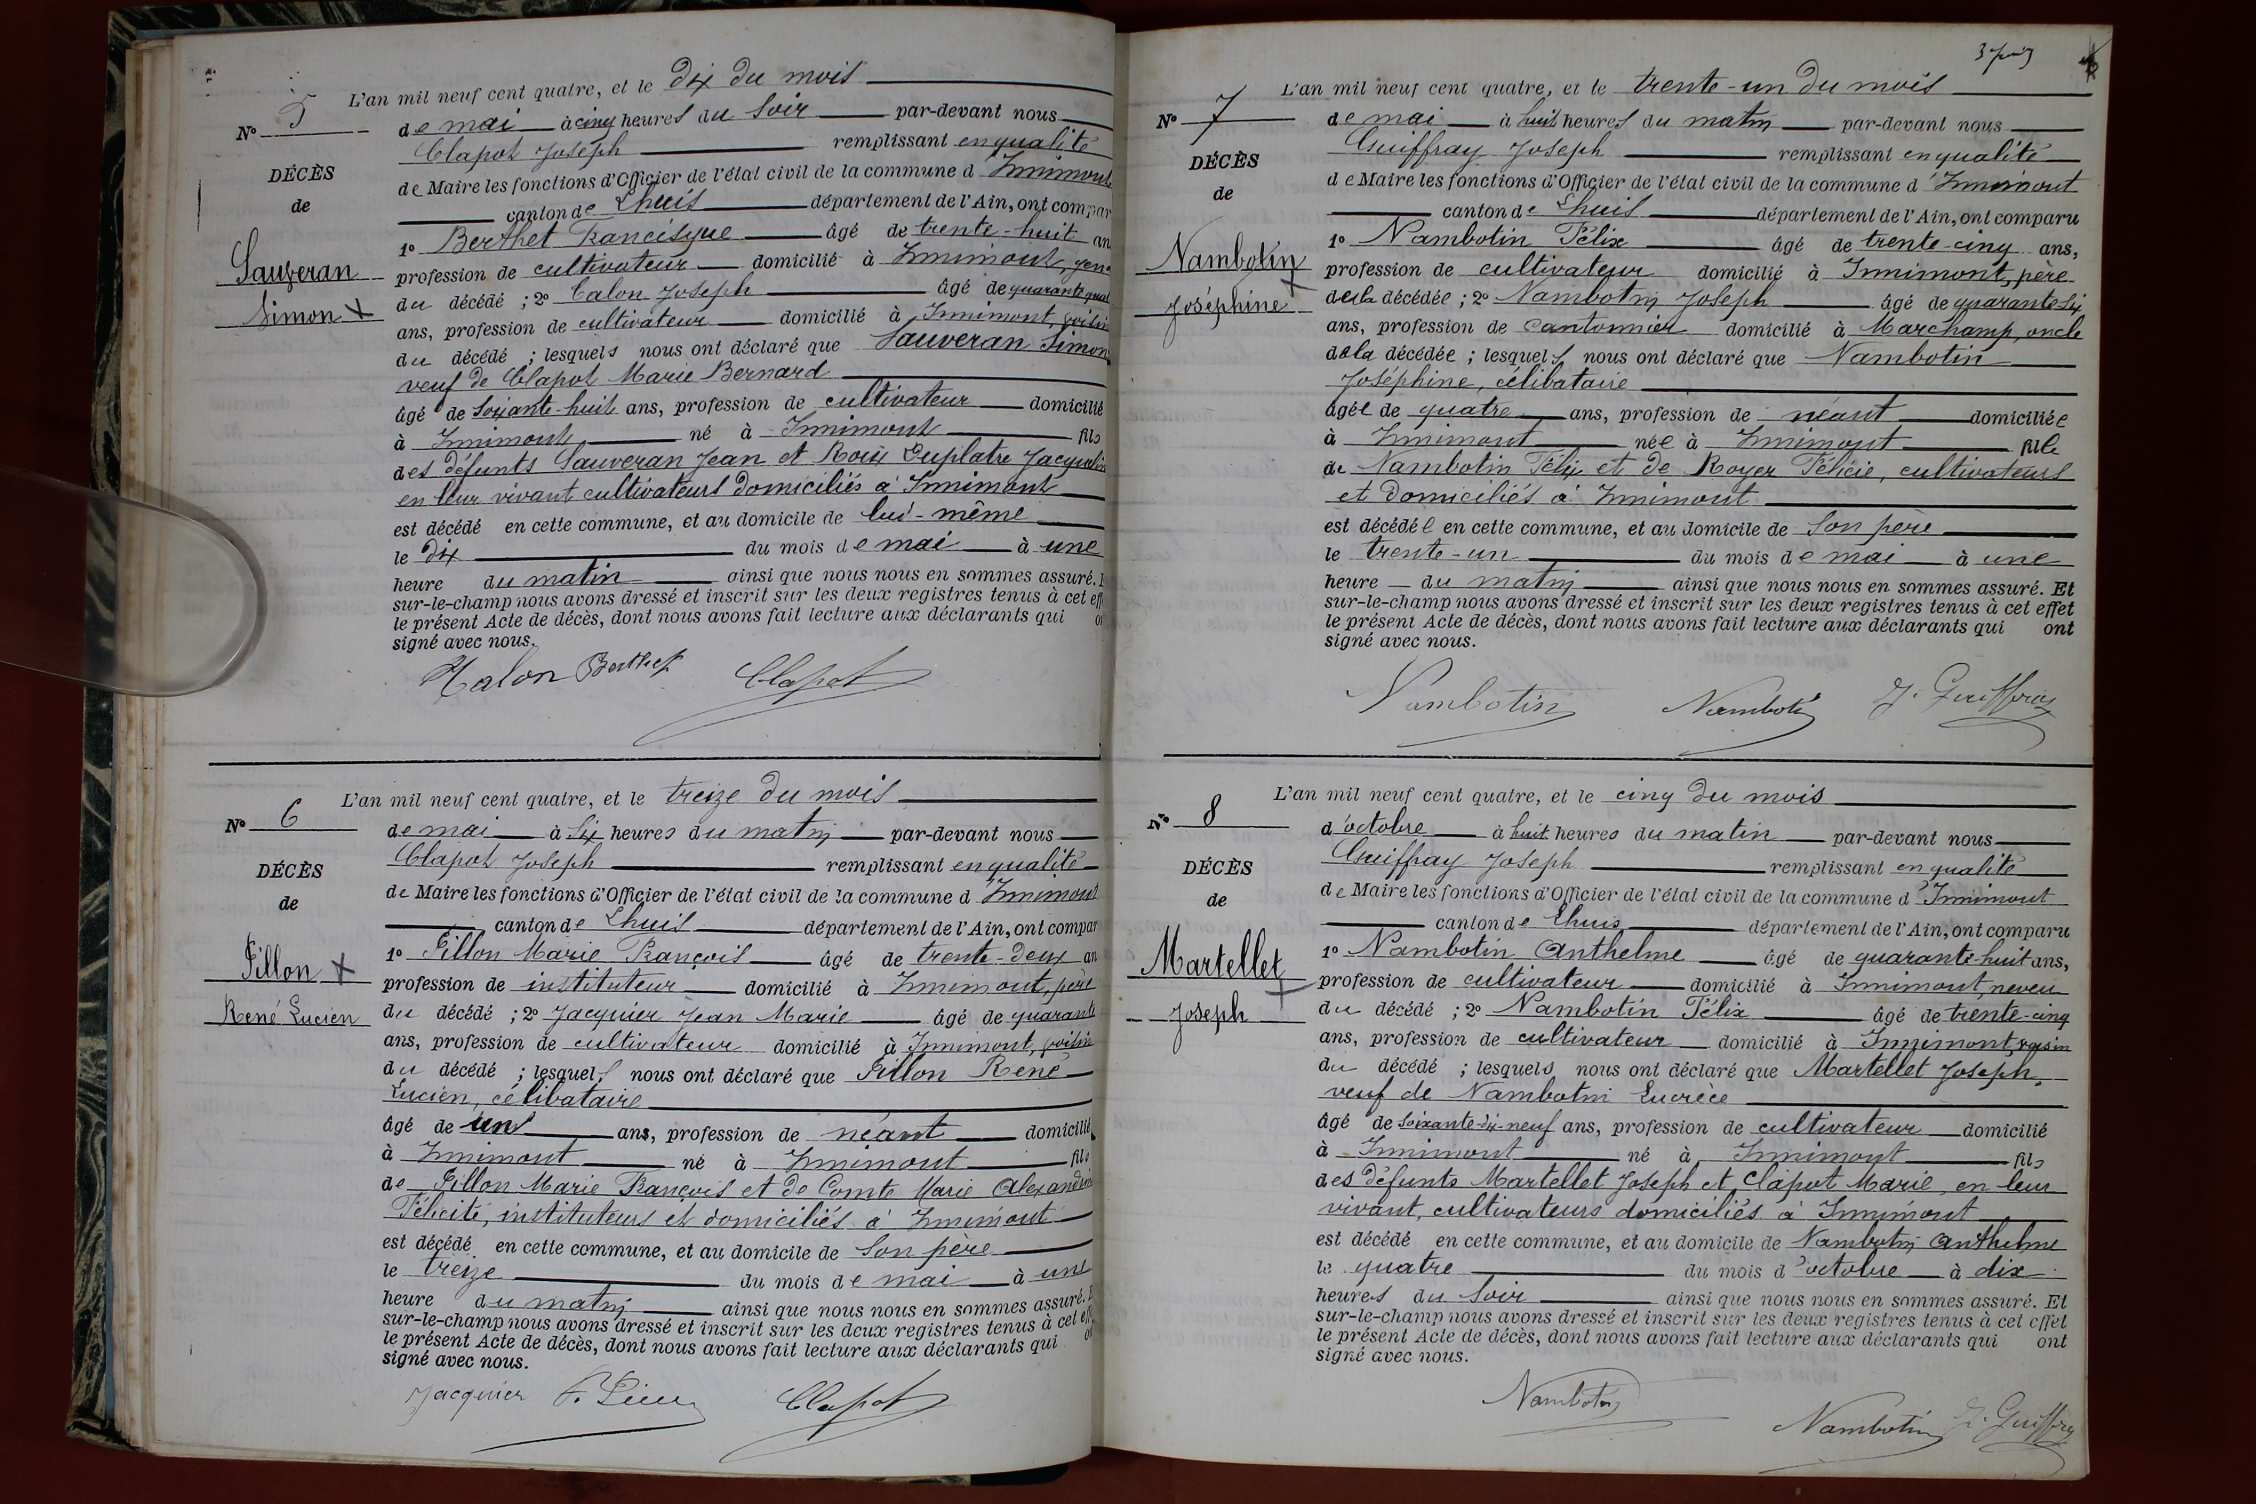 L'an mil neuf cent quatre, et le dix du mois
N° 5
de mai à cinq heures du soir par-devant nous
Clapot Joseph remplissant en qualité
DÉCÈS
de Maire les fonctions d'Officier de l'état civil de la commune d'Innimont
de
canton de Lhuis département de l'Ain, ont compar
1° Berthet Francisque âgé de trente-huit an
Sauveran
profession de cultivateur domicilié à Innimont,
du décédé ; 2° Calon Joseph âgé de quarante
Simon
ans, profession de cultivateur domicilié à Innimont, voisin
du décédé ; lesquels nous ont déclaré que Sauveran Simon
veuf de Clapot Marie Bernard
âgé de soixante-huit ans, profession de cultivateur domicilié
à Innimont né à Innimont fils
des défunts Sauveran Jean et Roux Duplatre Jacqueline
en leur vivant cultivateurs domiciliés à Innimont
est décédé en cette commune, et au domicile de lui-même
le dix du mois de mai à une
heure du matin ainsi que nous nous en sommes assuré.
sur-le-champ nous avons dressé et inscrit sur les deux registres tenus à cet eff
le présent Acte de décès, dont nous avons fait lecture aux déclarants qui
signé avec nous.
Calon Berthet Clapot
L'an mil neuf cent quatre, et le treize du mois
N° 6
de mai à six heures du matin par-devant nous
Clapot Joseph remplissant en qualité
DÉCÈS
de Maire les fonctions d'Officier de l'état civil de la commune d'Innimont
de
canton de Lhuis département de l'Ain, ont compar
1° Fillon Marie François âgé de trente-deux an
Fillon
profession de instituteur domicilié à Innimont, père
René Lucien
du décédé ; 2° Jacquier Jean Marie âgé de quarante
ans, profession de cultivateur domicilié à Innimont, voisin
du décédé ; lesquels nous ont déclaré que Fillon René
Lucien, célibataire
âgé de un ans, profession de néant domicilié
à Innimont né à Innimont fils
de Fillon Marie François et de Comte Marie Alexandrine
Félicité, instituteurs et domiciliés à Innimont
est décédé en cette commune, et au domicile de son père
le treize du mois de mai à une
heure du matin ainsi que nous nous en sommes assuré.
sur-le-champ nous avons dressé et inscrit sur les deux registres tenus à cet eff
le présent Acte de décès, dont nous avons fait lecture aux déclarants qui
signé avec nous.
Jacquier Clapot
L'an mil neuf cent quatre, et le trente-un du mois
N° 7
de mai à huit heures du matin par-devant nous
Guiffray Joseph remplissant en qualité
DÉCÈS
de Maire les fonctions d'Officier de l'état civil de la commune d'Innimont
de
canton de Lhuis département de l'Ain, ont comparu
1° Nambotin Félix âgé de trente-cinq ans,
Nambotin
profession de cultivateur domicilié à Innimont, père
Joséphine
de la décédée ; 2° Nambotin Joseph âgé de quarante six
ans, profession de cantonnier domicilié à Marchamp, oncle
de la décédée ; lesquels nous ont déclaré que Nambotin
Joséphine, célibataire
âgée de quatre ans, profession de néant domiciliée
à Innimont née à Innimont fille
de Nambotin Félix et de Royer Félicie, cultivateurs
et domiciliés à Innimont
est décédée en cette commune, et au domicile de son père
le trente-un du mois de mai à une
heure du matin ainsi que nous nous en sommes assuré. Et
sur-le-champ nous avons dressé et inscrit sur les deux registres tenus à cet effet
le présent Acte de décès, dont nous avons fait lecture aux déclarants qui ont
signé avec nous.
Nambotin Nambotin J. Guiffray
L'an mil neuf cent quatre, et le cinq du mois
N° 8
d'octobre à huit heures du matin par-devant nous
Guiffray Joseph remplissant en qualité
DÉCÈS
de Maire les fonctions d'Officier de l'état civil de la commune d'Innimont
de
canton de Lhuis département de l'Ain, ont comparu
1° Nambotin Anthelme âgé de quarante-huit ans,
Martellet
profession de cultivateur domicilié à Innimont, neveu
Joseph
du décédé ; 2° Nambotin Félix âgé de trente-cinq
ans, profession de cultivateur domicilié à Innimont, voisin
du décédé ; lesquels nous ont déclaré que Martellet Joseph,
veuf de Nambotin Lucrèce
âgé de soixante-dix-neuf ans, profession de cultivateur domicilié
à Innimont né à Innimont fils
des défunts Martellet Joseph et Clapot Marie, en leur
vivant, cultivateurs domiciliés à Innimont
est décédé en cette commune, et au domicile de Nambotin Anthelme
le quatre du mois d'octobre à dix
heures du soir ainsi que nous nous en sommes assuré. Et
sur-le-champ nous avons dressé et inscrit sur les deux registres tenus à cet effet
le présent Acte de décès, dont nous avons fait lecture aux déclarants qui ont
signé avec nous.
Nambotin Nambotin J. Guiffray